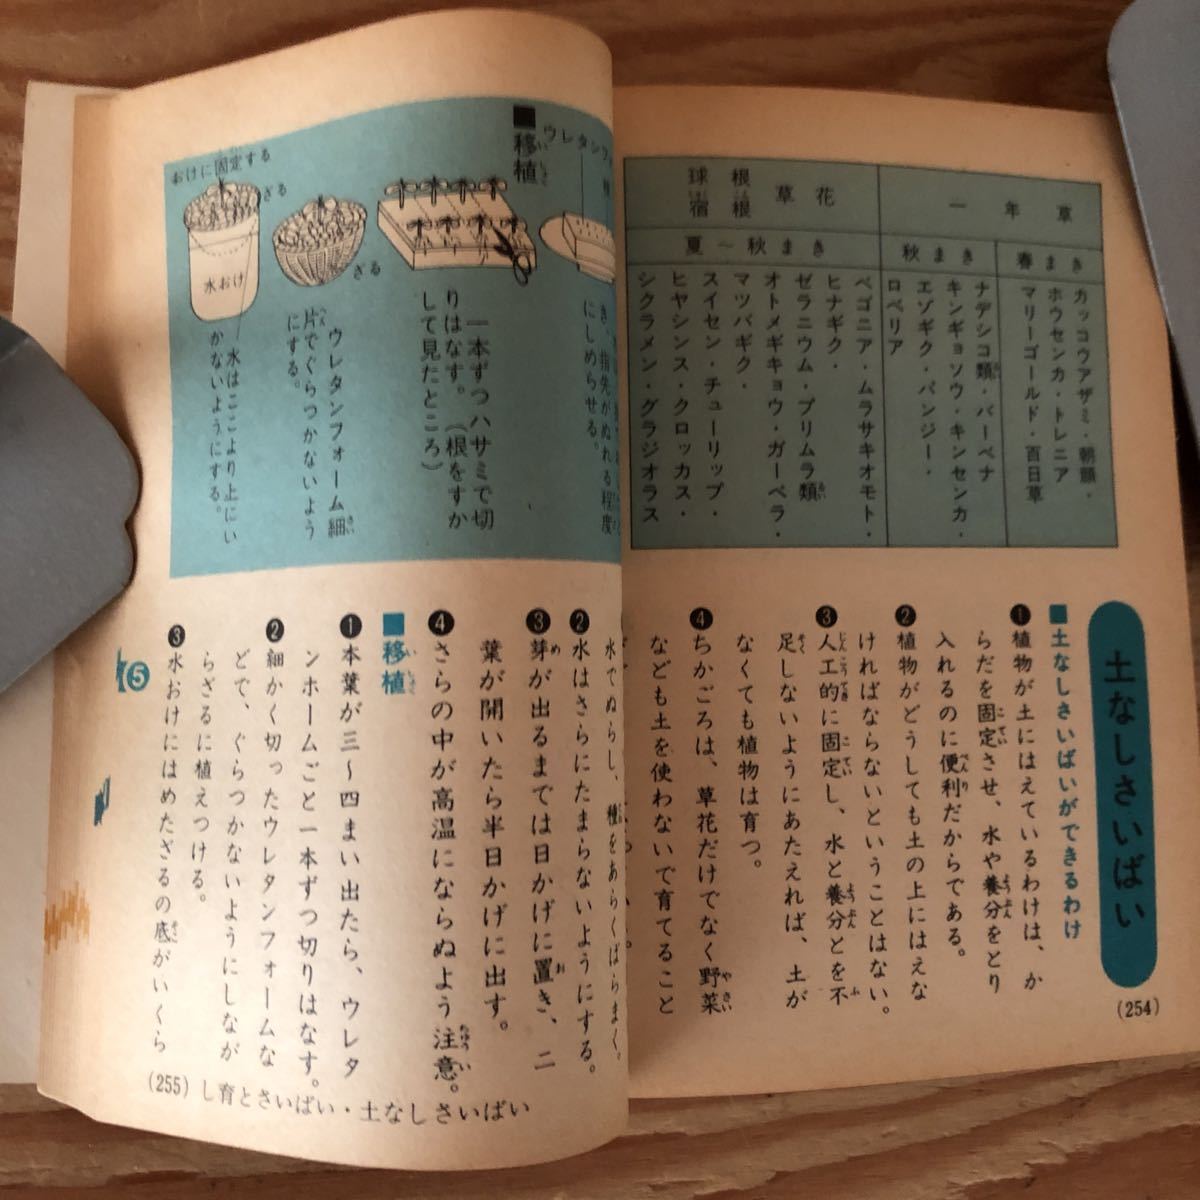 土なしさいばい
■土なしさいばいができるわけ
❶植物が土にはえているわけは、か
らだを固定させ、水や養分をとり
入れるのに便利だからである。
❷植物がどうしても土の上にはえな
ければならないということはない。
❸人工的に固定し、水と養分とを不
足しないようにあたえれば、土が
なくても植物は育つ。
❹ちかごろは、草花だけでなく野菜
なども土を使わないで育てること
(254)
一年草
春まき
カッコウアザミ・朝顔・
ホウセンカ・トレニア
マリーゴールド・百日草
秋まき
ナデシコ類・バーベナ
キンギョソウ・キンセンカ・
エゾギク・パンジー・
ロベリア
球根
宿根
草花
夏〜秋まき
ベゴニア・ムラサキオモト・
ヒナギク・
ゼラニウム・プリムラ類
オトメギキョウ・ガーベラ・
マツバギク・
スイセン・チューリップ・
ヒヤシンス・クロッカス・
シクラメン・グラジオラス
ウレタンフォ
き、指先がぬれる程度
にしめらせる。
■移植
一本ずつハサミで切
りはなす。(根をすか
して見たところ)
ざる
ウレタンフォーム細
片でぐらつかないよう
にする。
おけに固定する
ざる
水おけ
水はここより上にい
かないようにする。
水でぬらし、種をあらくばらまく。
❷水はさらにたまらないようにする。
❸芽が出るまでは日かげに置き、二
葉が開いたら半日かげに出す。
❹さらの中が高温にならぬよう注意。
■移植
❶本葉が三〜四まい出たら、ウレタ
ンホームごと一本ずつ切りはなす。
❷細かく切ったウレタンフォームな
どで、ぐらつかないようにしなが
らざるに植えつける。
❸水おけにはめたざるの底がいくら
5
(255) し育とさいばい・土なしさいばい